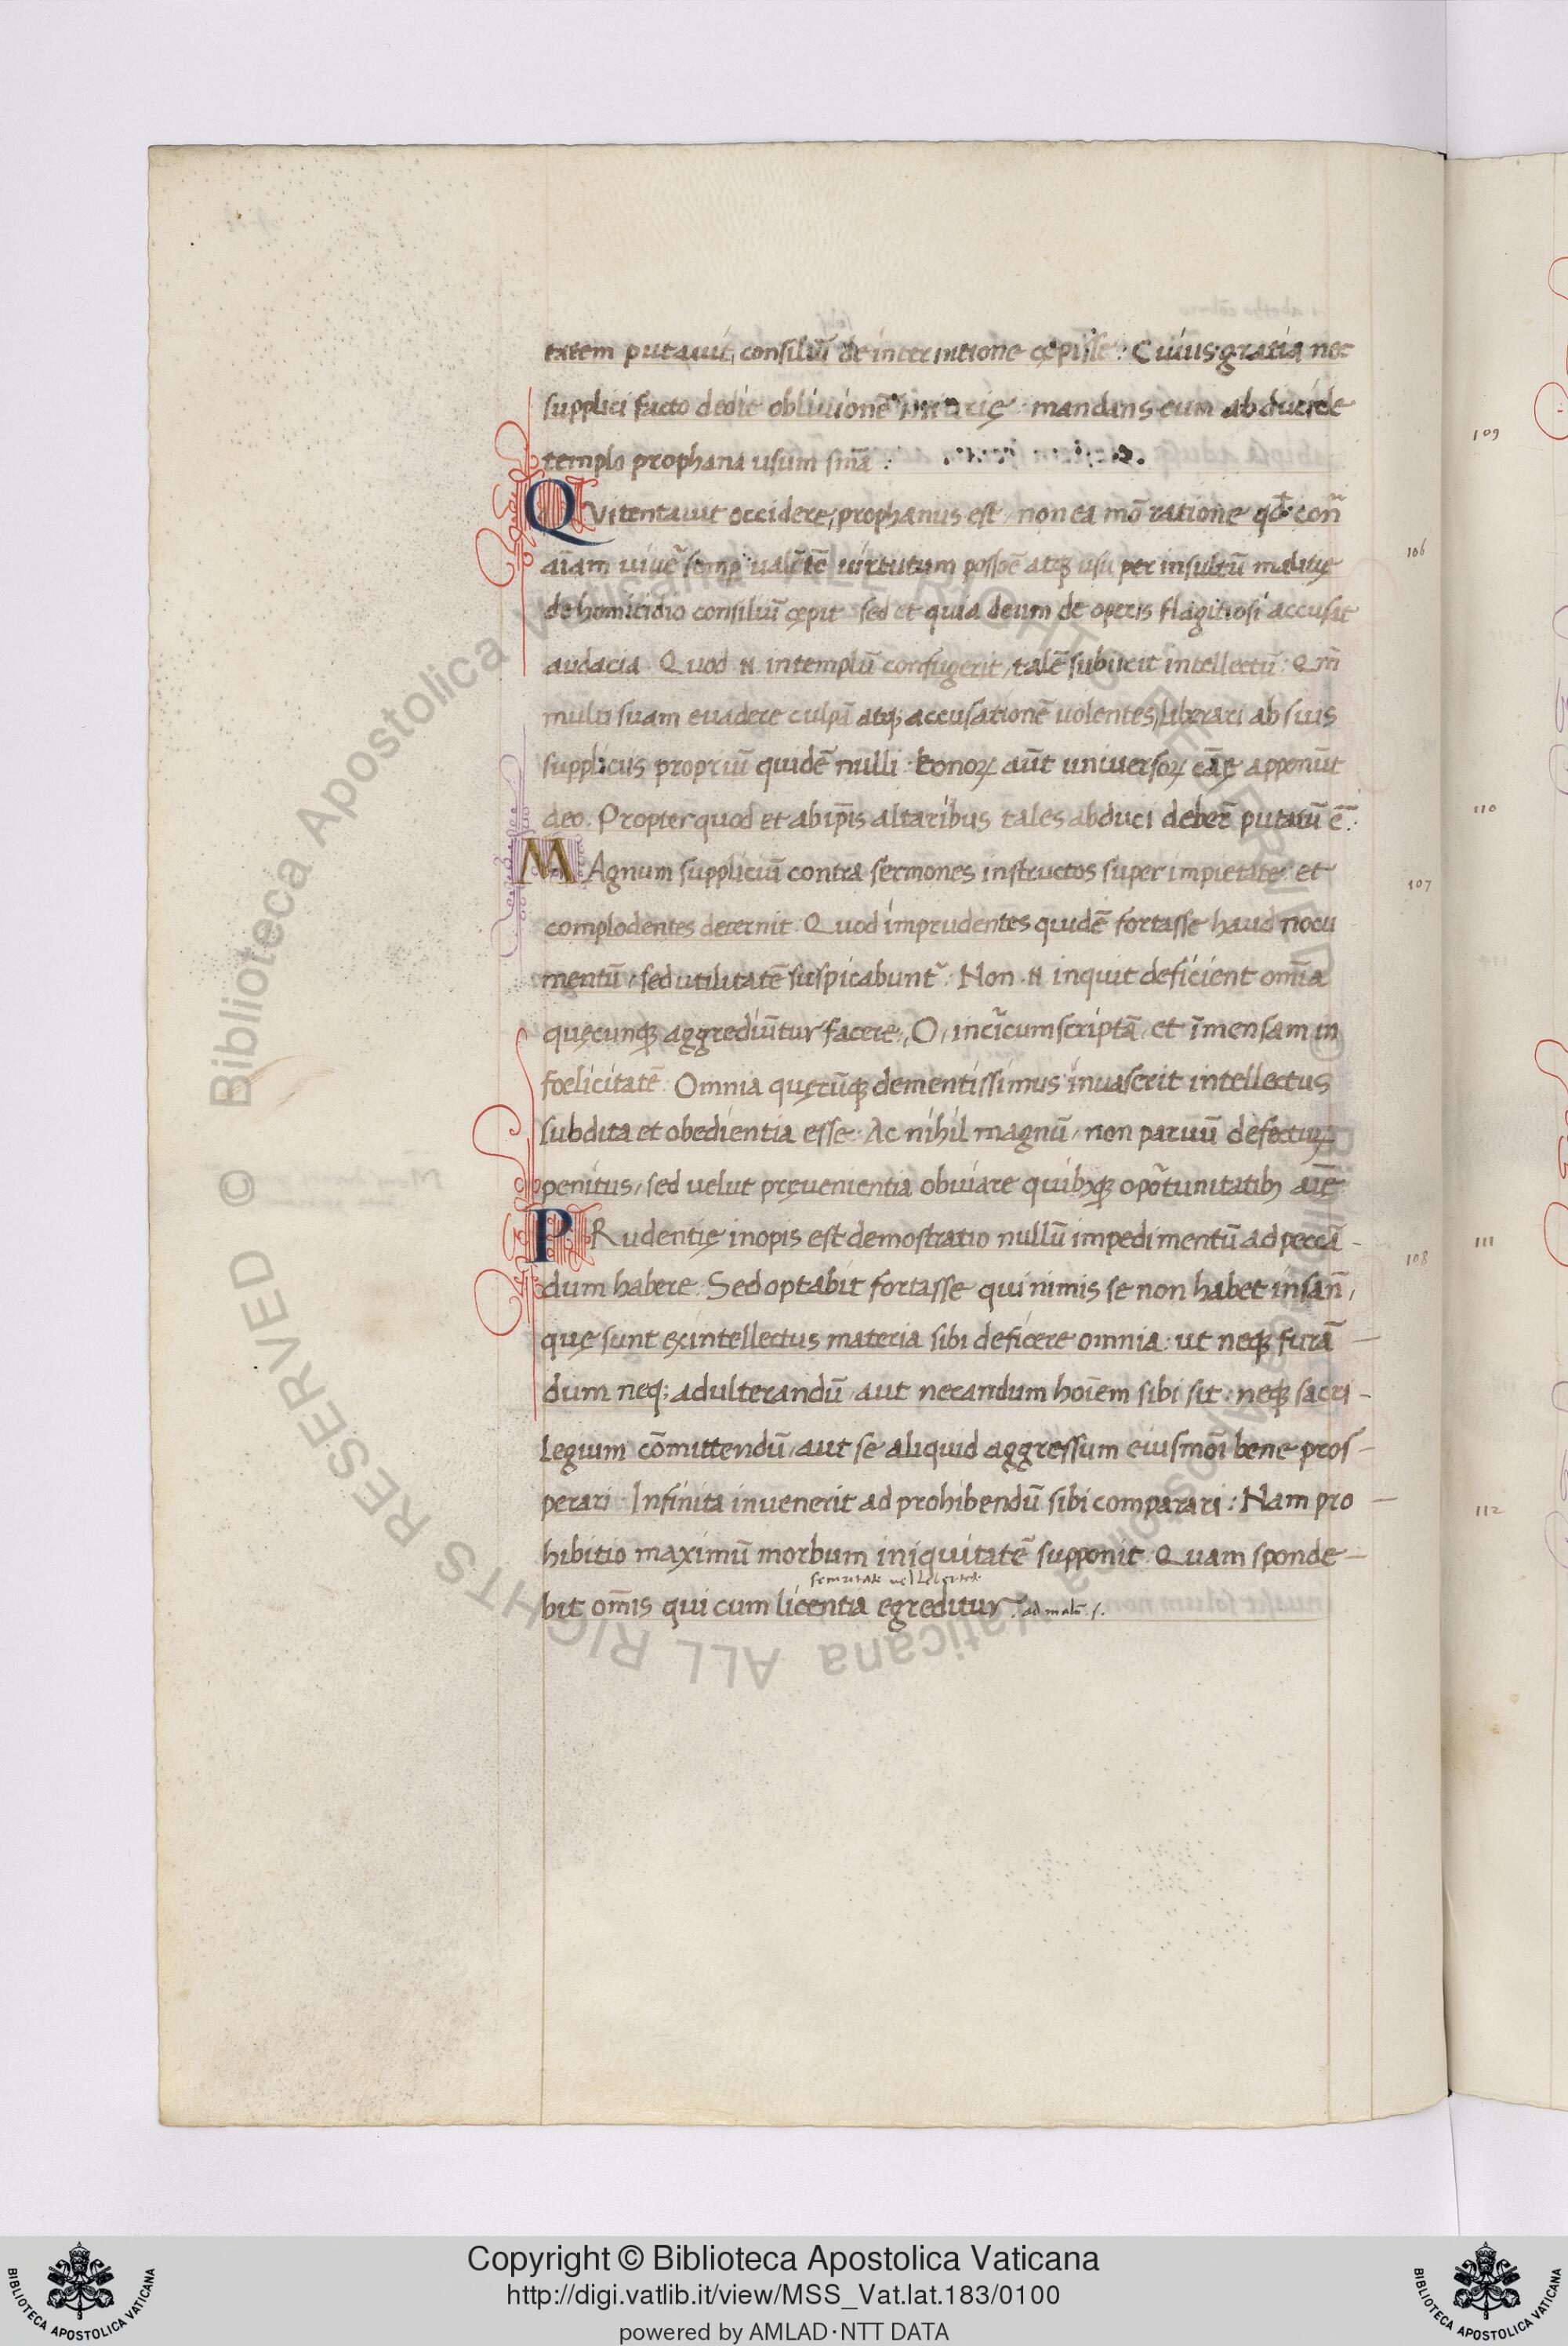 tatem putauit, consiliū de internitione cępisse: Cuius gratia nec
supplici facto dedit obliuionē mandans eum abduci de
templo prophana usum sm̄a:
QVi tentauit occidere, prophanus est, non ea mō ratione qđ con̄
aīam uiuē semp ualētē uirtutum possessiōe atqꝫ usu per insultū malitię
de homicidio consiliū cępit sed et quia deum de operis flagitiosi accusat
audacia. Quod .n. in templū confugerit, talē subiicit intellectū: Qm̄
multi suam euadere culpā atqꝫ accusationē uolentes, liberari ab suis
suppliciis propriū quidē nulli: bonoꝝ aūt uniuersoꝝ cāę apponūt
deo. Propter quod et ab ip̄is altaribus tales abduci deberē putatū ē.
MAgnum suppliciū contra sermones instructos super impietate et
complodentes decernit. Quod imprudentes quidē fortasse haud nocu
mentū, sed utilitatē suspicabunt͛. Non .n. inquit deficient omīa
quęcunqꝫ aggrediūtur facere, O, incircumscriptā, et īmensam in
foelicitatē. Omnia quęcūqꝫ dementissimus inuaserit intellectus
subdita et obedientia esse. Ac nihil magnū, non paruū defecturꝫ
penitus, sed uelut pręuenientia obuiare quibꝫqꝫ oportunitatibꝫ aīę
PRudentię inopis est demostratio nullū impedimentū ad peccā-
dum habere. Sed optabit fortasse qui nimis se non habet insan̄,
quę sunt ex intellectus materia sibi deficere omnia: ut neqꝫ furā-
dum neqꝫ adulterandū aut necandum hoīem sibi sit: neqꝫ sacri-
legium cōmittendū, aut se aliquid aggressum eiusmōi bene pros-
perari. Infinita inuenerit ad prohibendū sibi comparari: Nam pro-
hibitio maximū morbum iniquitatē supponit. Quam sponde-
bit omīs qui cum licentia egreditur. ad malū s.
106
107
108
109
110
111
112
Biblioteca Apostolica Vaticana ALL RIGHTS RESERVED ©
Copyright © Biblioteca Apostolica Vaticana
http://digi.vatlib.it/view/MSS_Vat.lat.183/0100
powered by AMLAD·NTT DATA
BIBLIOTECA APOSTOLICA VATICANA
BIBLIOTECA APOSTOLICA VATICANA